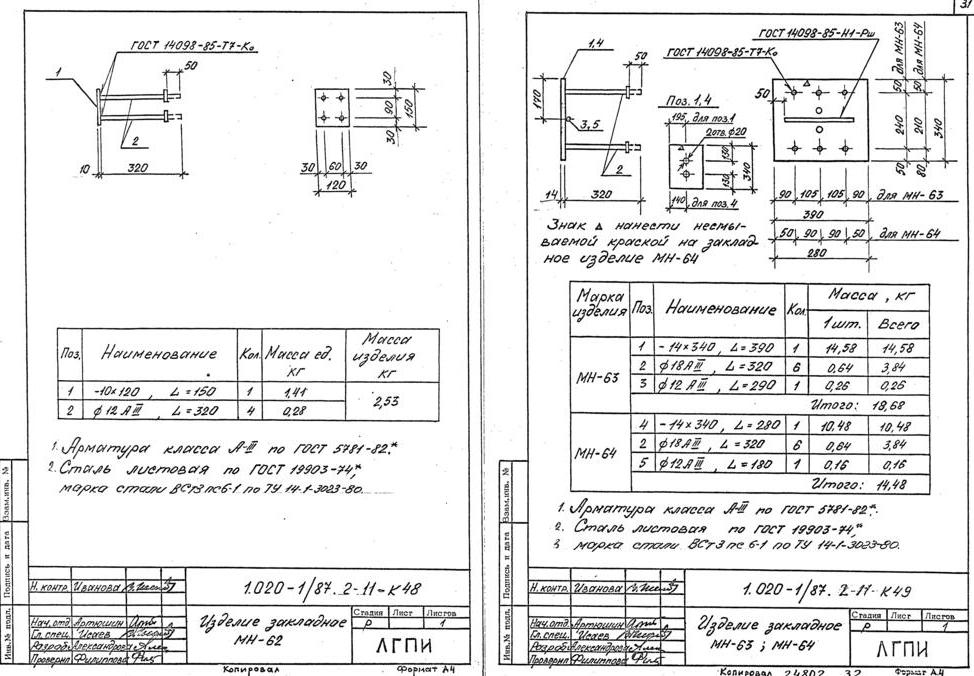 31
ГОСТ 14098-85-Т7-Ко
1
50
2
10
320
30
90
30
150
30
60
30
120
Поз.
Наименование
Кол.
Масса ед. кг
Масса изделия кг
1 -10×120, L=150 1 1,41
2 ф12 АIII, L=320 4 0,28
2,53
1. Арматура класса А-III по ГОСТ 5781-82.*
2. Сталь листовая по ГОСТ 19903-74,*
марка стали ВСт3пс6-1 по ТУ 14-1-3023-80.
Взам.инв. №
Подпись и дата
Инв.№ подл.
Н. контр. Иванова
1.020-1/87. 2-11-К48
Нач.отд. Артюшин
Гл. спец. Исаев
Разраб. Александрова
Проверил Филиппова
Изделие закладное
МН-62
Стадия Лист Листов
Р 1
ЛГПИ
Копировал
Формат А4
ГОСТ 14098-85-Н1-Рш
ГОСТ 14098-85-Т7-Ко
1,4
50
170
3,5
2
14
320
Поз. 1,4
195 для поз.1
2отв.ф20
130
130
340
140 для поз.4
50
50 240 50 для МН-63
50 210 80 для МН-64
340
90 105 105 90 для МН-63
390
50 90 90 50 для МН-64
280
Знак ▵ нанести несмы-
ваемой краской на заклад-
ное изделие МН-64
Марка изделия
Поз.
Наименование
Кол.
Масса, кг
1шт. Всего
МН-63
1 -14×340, L=390 1 14,58 14,58
2 ф18АIII, L=320 6 0,64 3,84
3 ф12 АIII, L=290 1 0,26 0,26
Итого: 18,68
МН-64
4 -14×340, L=280 1 10,48 10,48
2 ф18АIII, L=320 6 0,64 3,84
5 ф12АIII, L=180 1 0,16 0,16
Итого: 14,48
1. Арматура класса А-III по ГОСТ 5781-82*.
2. Сталь листовая по ГОСТ 19903-74,*
3 марка стали ВСт3пс6-1 по ТУ 14-1-3023-80.
Взам.инв. №
Подпись и дата
Инв.№ подл.
Н. контр. Иванова
1.020-1/87. 2-11-К49
Нач.отд. Артюшин
Гл.спец. Исаев
Разраб. Александрова
Проверил Филиппова
Изделие закладное
МН-63; МН-64
Стадия Лист Листов
Р 1
ЛГПИ
Копировал 24802 32
Формат А4